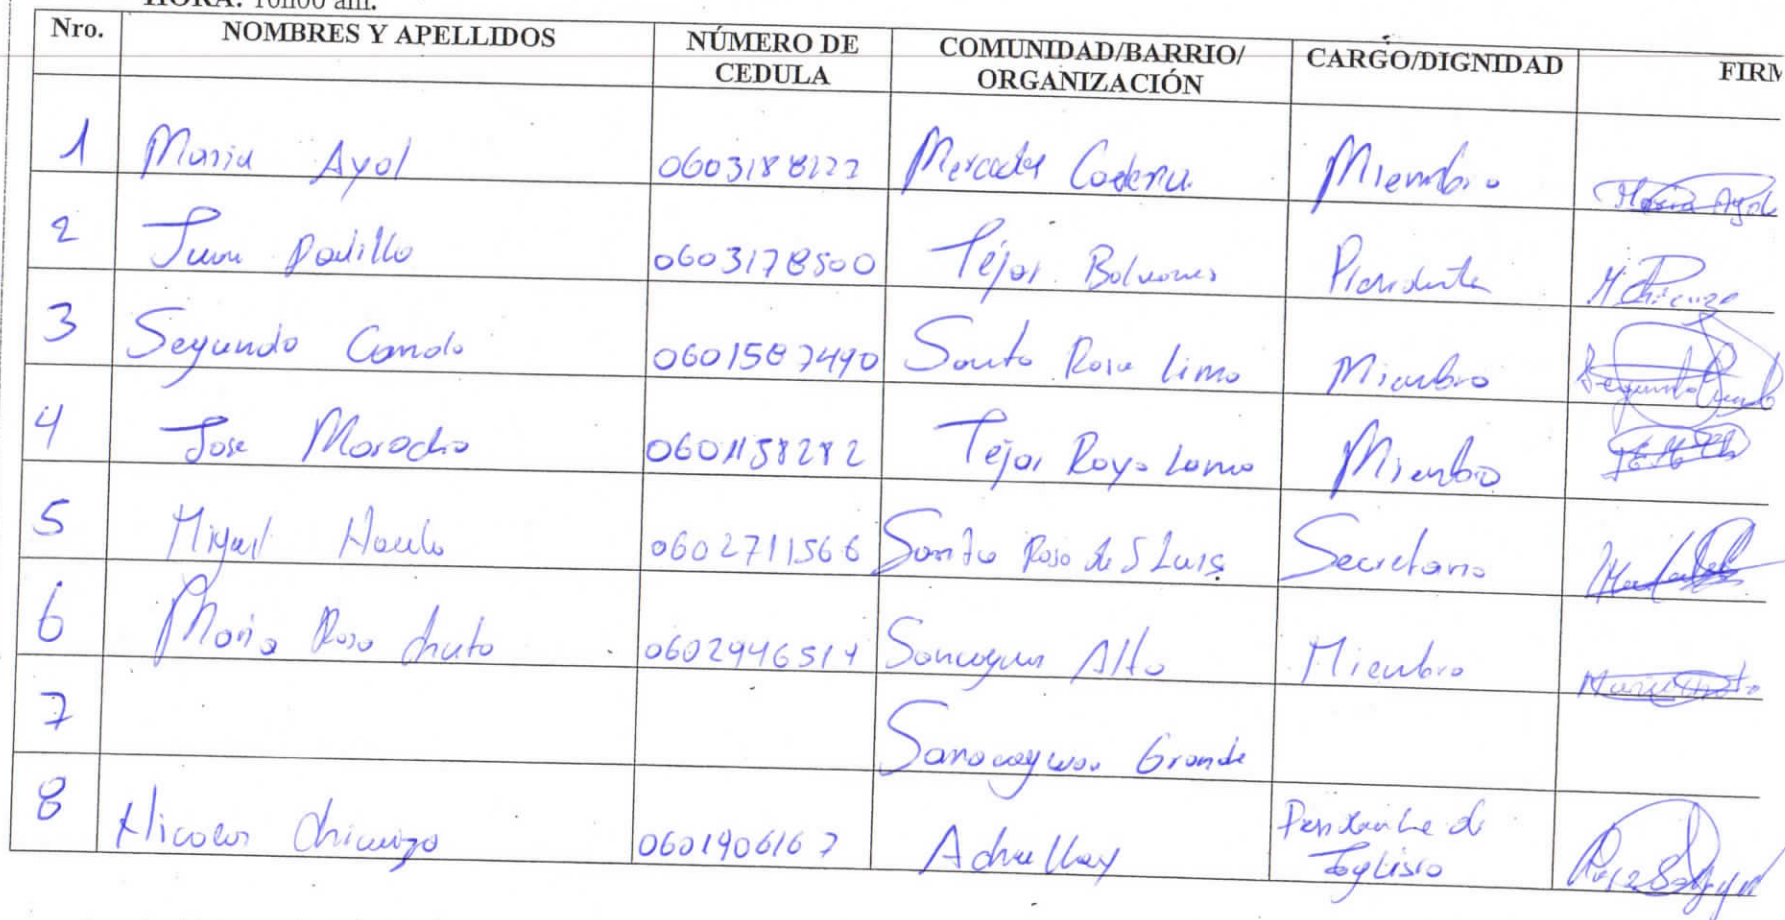 HORA: 10h00 am.
Nro. NOMBRES Y APELLIDOS NÚMERO DE CEDULA COMUNIDAD/BARRIO/ORGANIZACIÓN CARGO/DIGNIDAD FIRM
1 Maria Ayol 0603188122 Mercedes Cadena Miembro Maria Ayol
2 Juan Padilla 0603178500 Tejar Balvones Presidente
3 Segundo Cando 0601587490 Santa Rosa lima Miembro Segundo
4 Jose Morocho 0601158282 Tejar Rayo Loma Miembro
5 Miguel 0602711566 Santa Rosa de S Luis Secretario
6 Maria Rosa chuto 0602946514 Sancaguan Alto Miembro
7 Grande
8 Nicolas Chicaiza 0601906167 Achullay